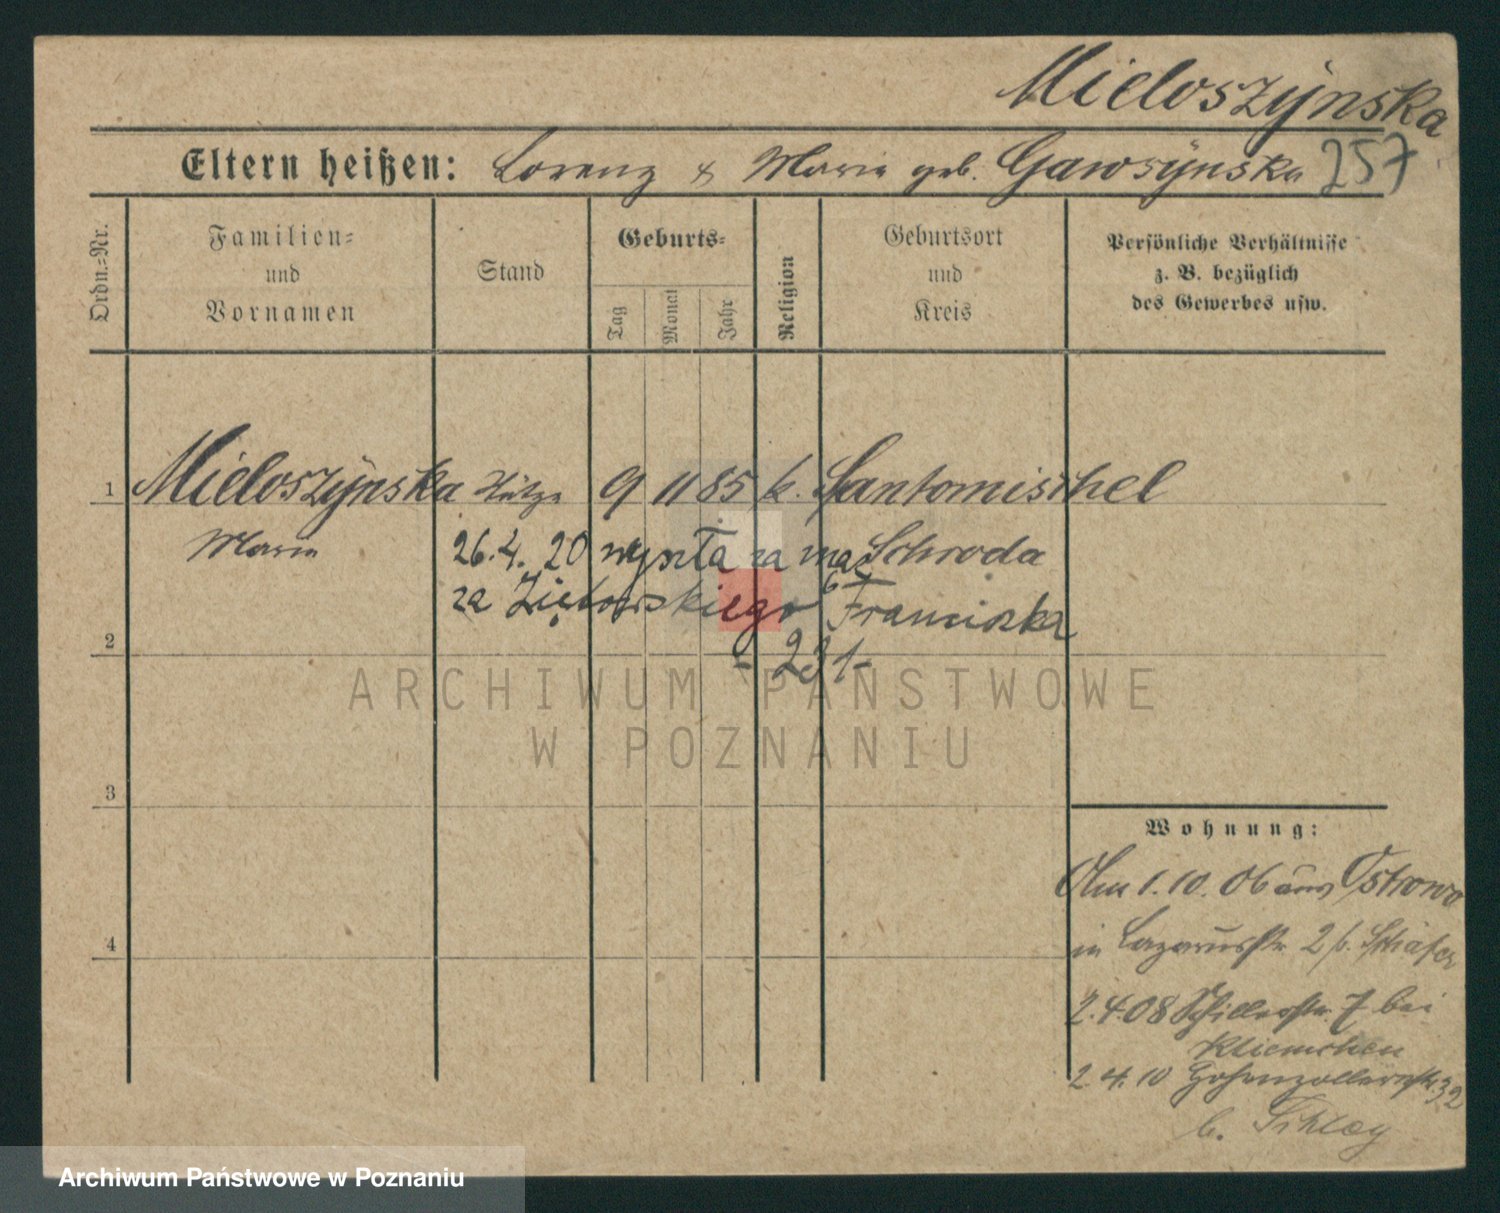 Mieloszynska
Eltern heißen: Lorenz & Marie geb. Gawsynska 257
Ordn.=Nr.
Familien=
und
Vornamen
Stand
Geburts=
Tag
Monat
Jahr
Religion
Geburtsort
und
Kreis
Persönliche Verhältnisse
z. B. bezüglich
des Gewerbes usw.
1 Mieloszynska Stütze 9 11 85 k. Santomischel
Marie Schroda
26.4.20 wyszła za mąż
za Ziętowskiego Franciszka
- 231 -
2
3
4
Wohnung:
Am 1.10.06 aus Ostrowo
in Lazarusstr. 2 b. Schäfer
2.4.08 Schillerstr. 7 bei
Kliemchen
2.4.10 Hohenzollernstr. 32
b.
ARCHIWUM PAŃSTWOWE
W POZNANIU
Archiwum Państwowe w Poznaniu